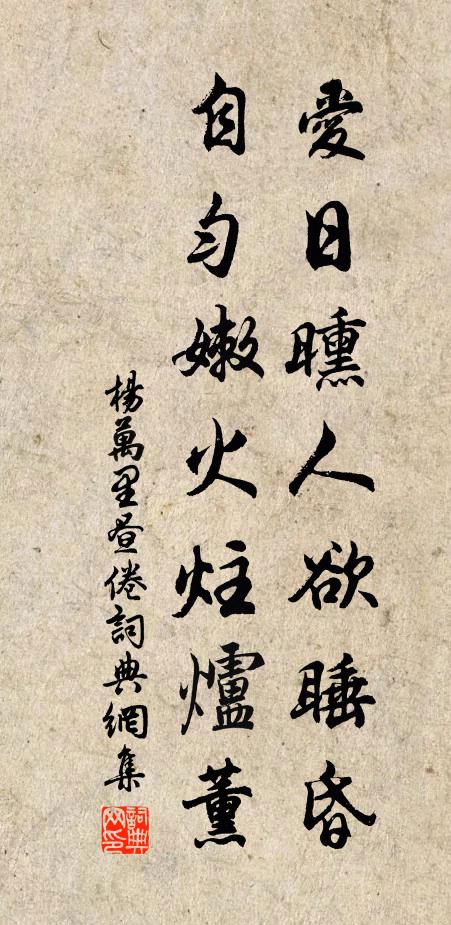 愛日曛人欲睡昏
自勻嫩火炷爐薰
楊萬里昼倦詞典網集
詞典网印